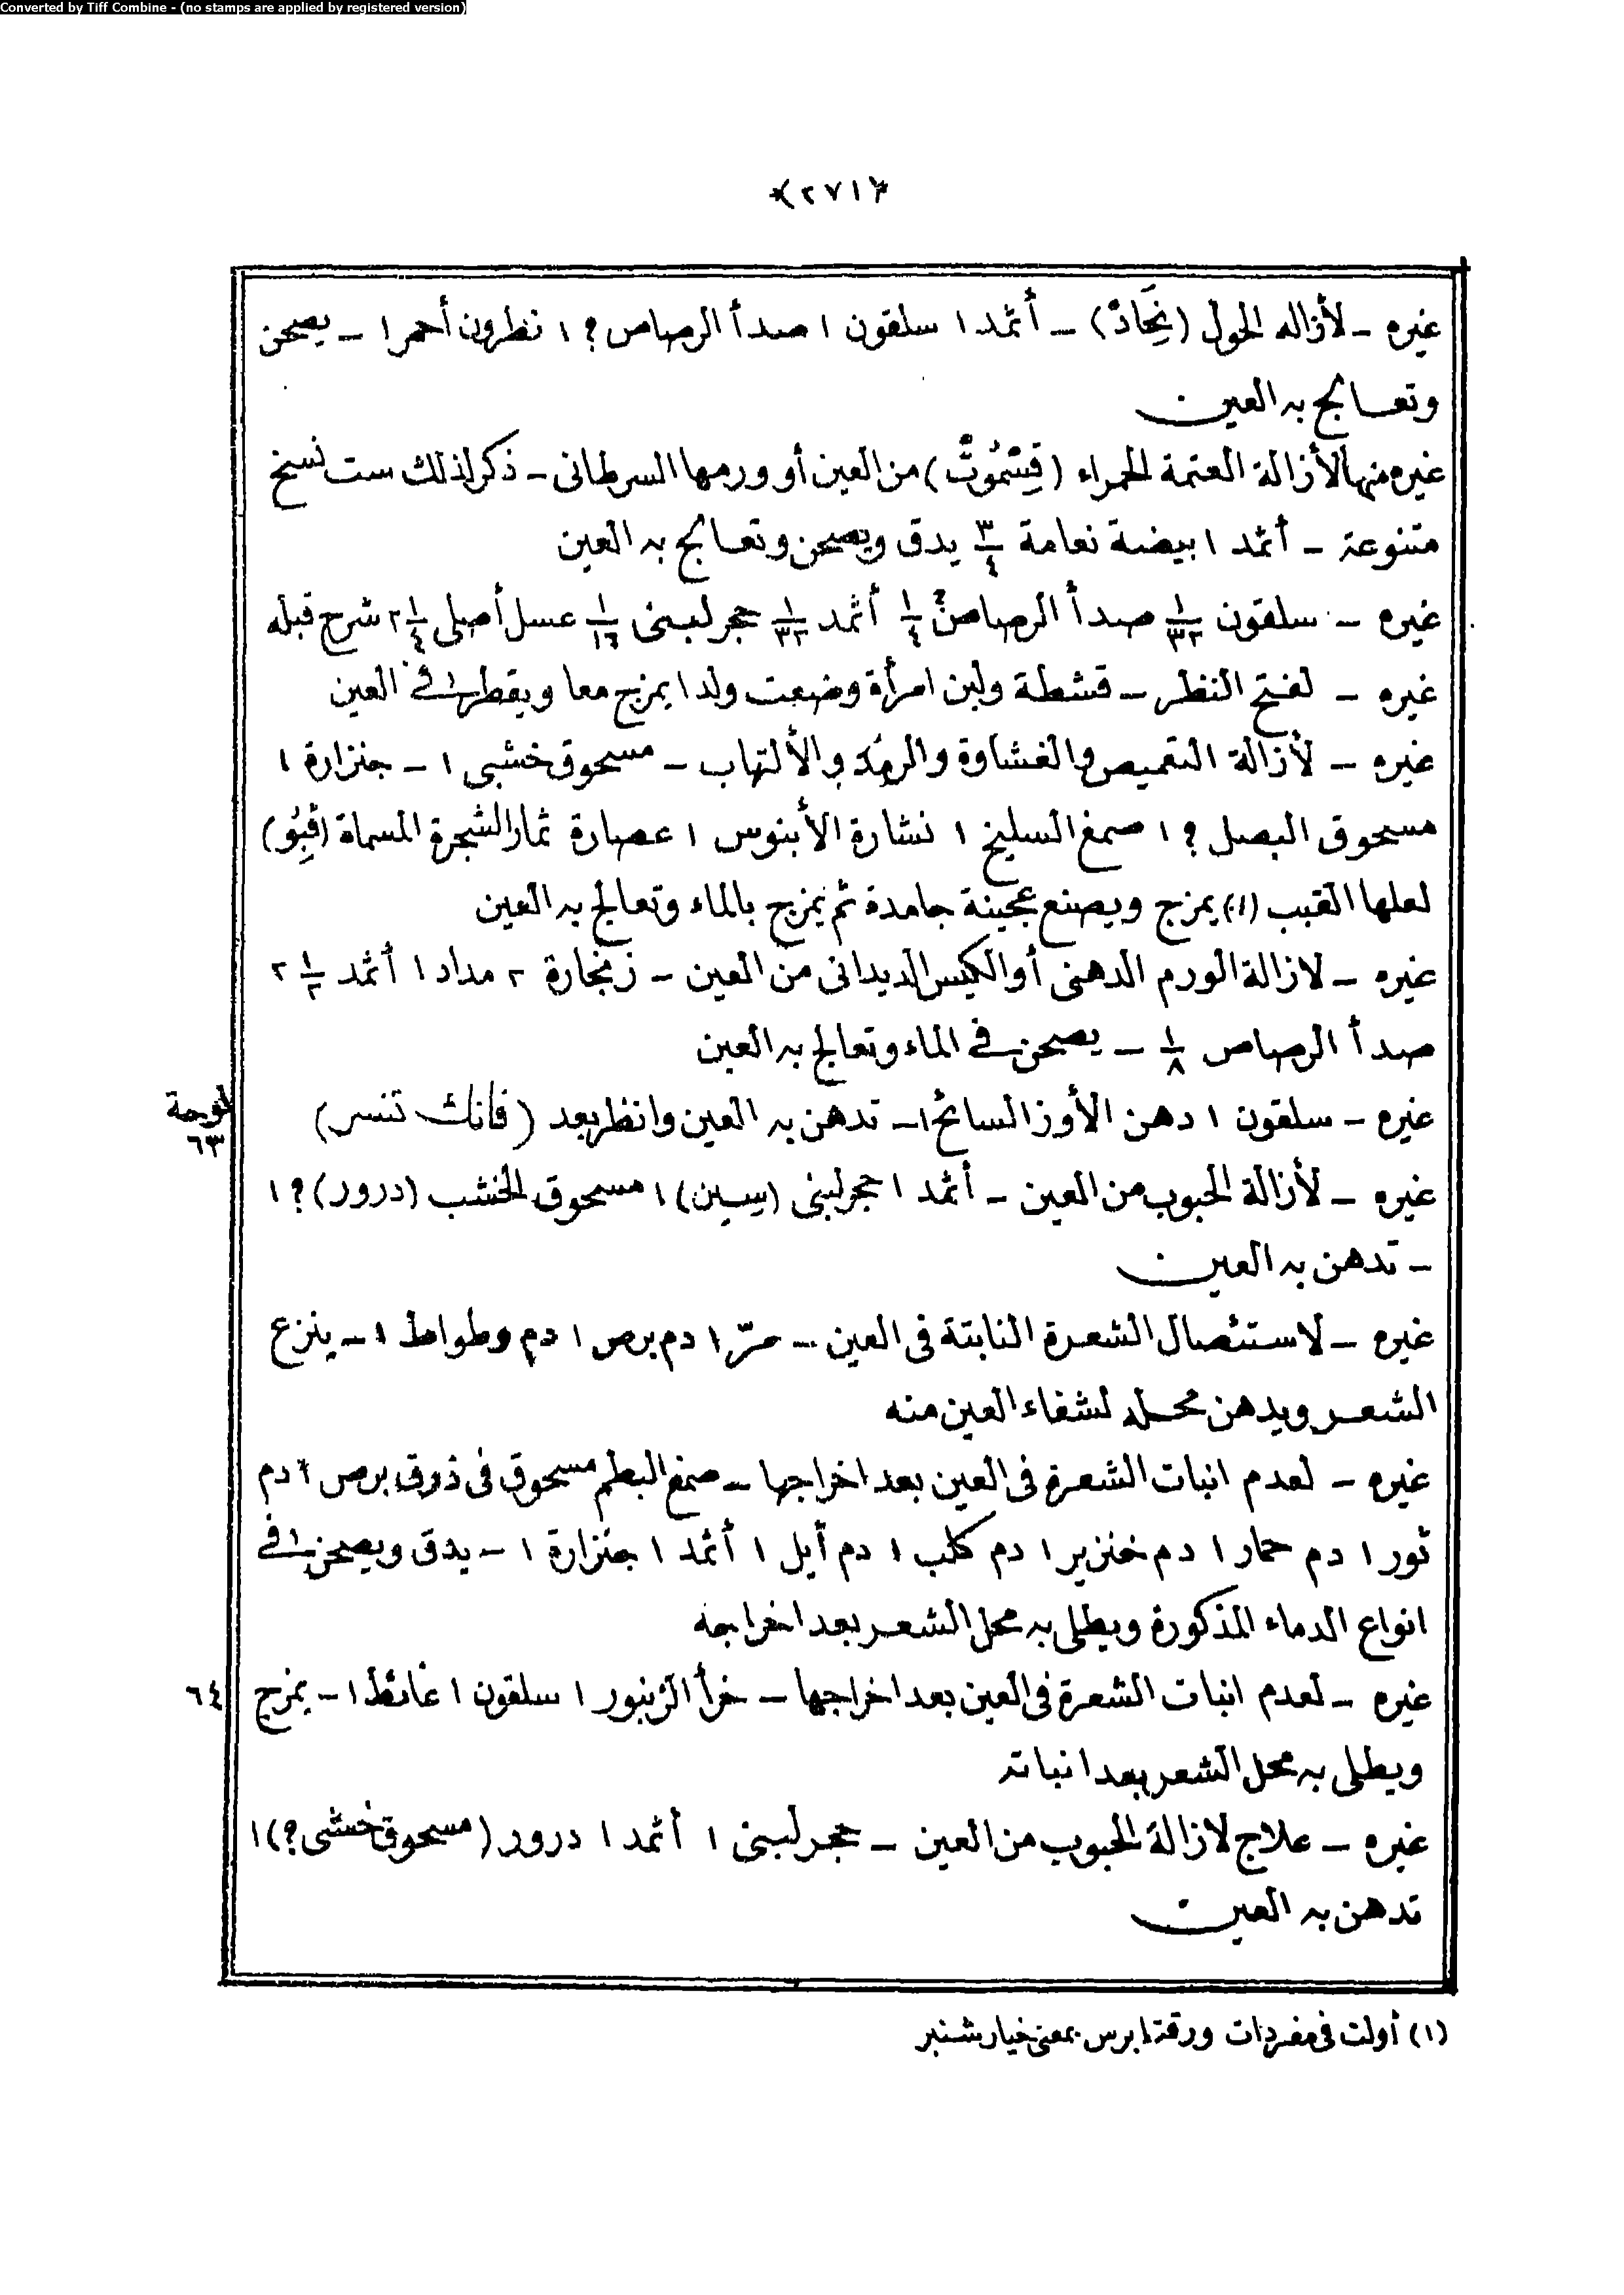 Converted by Tiff Combine - (no stamps are applied by registered version)
﴿٢٧١﴾
غيره – لأزاله الحول (نِحَادْ) – أثمد ١ سلقون ١ صدأ الرصاص ؟ ١ نطرون أحمر ١ – يصحن
وتعالج به العين
غيره منها لأزالة العتمة الحمراء (قِشْمُوتْ) من العين أو ورمها السرطانى – ذكر لذلك ست نسخ
متنوعة – أثمد ١ بيضة نعامة ٣/٤ يدق ويصحن وتعالج به العين
غيره – سلقون ١/٣٢ صدأ الرصاص؟ ١/٤ أثمد ١/٣٢ حجر لبنى ١/١٦ عسل أصلى ٢ ١/٤ شرح قبله
غيره – لفتح النظر – قشطة ولبن امرأة وضعت ولدا يمزج معا ويقطر ١ فى العين
غيره – لأزالة التقميص والغشاوة والرمد والألتهاب – مسحوق خشبى ١ – جنزارة ١
مسحوق البصل ؟ ١ صمغ السليخ ١ نشارة الأبنوس ١ عصارة ثمار الشجرة المسماة (قِبُو)
لعلها القبب (١) يمزج ويصنع عجينة جامدة ثم يمزج بالماء وتعالج به العين
غيره – لازالة الورم الدهنى أو الكيس الديدانى من العين – زنجارة ٢ مداد ١ أثمد ١/٢ ٢
صدأ الرصاص ١/٨ – يصحن فى الماء وتعالج به العين
غيره – سلقون ١ دهن الأوز السائح ١ – تدهن به العين وانظر بعد (فانك تنسر)
لوحة
٦٣
غيره – لأزالة الحبوب من العين – أثمد ١ حجر لبنى (سِين) ١ مسحوق الخشب (درور) ؟ ١
– تدهن به العين
غيره – لاستئصال الشعرة النابتة فى العين – مرّ ١ دم برص ١ دم وطواط ١ – ينزع
الشعر ويدهن محله لشفاء العين منه
غيره – لعدم انبات الشعرة فى العين بعد اخراجها – صمغ البطم مسحوق فى ذروق برص ١ دم
ثور ١ دم حمار ١ دم خنزير ١ دم كلب ١ دم أيل ١ أثمد ١ جنزارة ١ – يدق ويصحن ١ فى
انواع الدماء المذكورة ويطلى به محل الشعر بعد اخراجه
غيره – لعدم انبات الشعرة فى العين بعد اخراجها – خرأ الزنبور ١ سلقون ١ غائط ١ – يمزج
٦٤
ويطلى به محل الشعر بعد انباته
غيره – علاج لازالة الحبوب من العين – حجر لبنى ١ أثمد ١ درور (مسحوق خشبى ؟) ١
تدهن به العين
(١) أولت فى مفردات ورقة ابرس بمعنى خيار شنبر